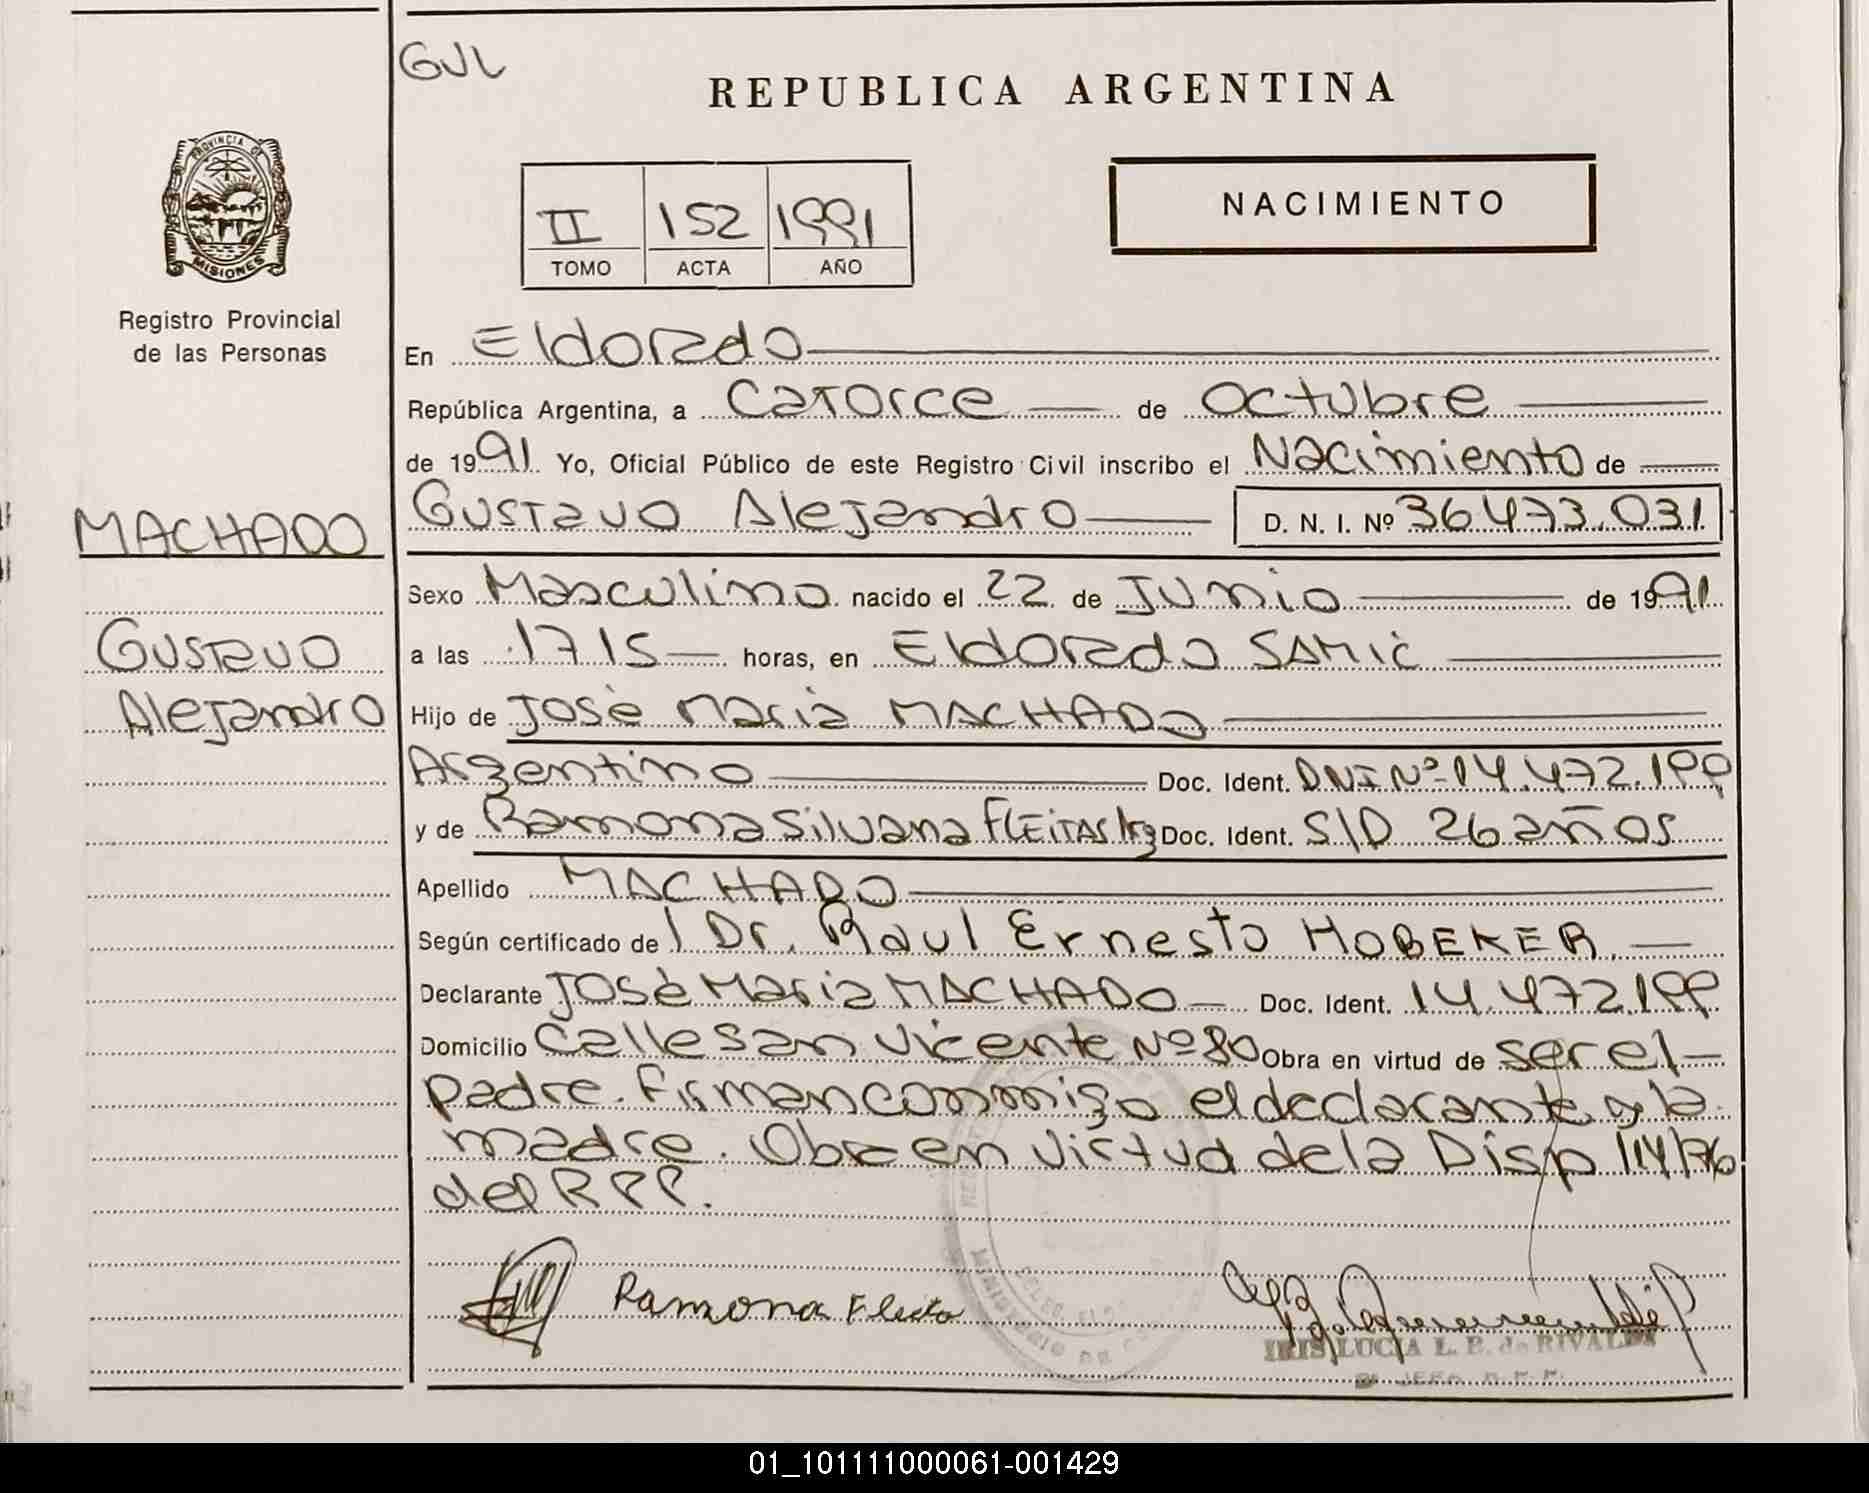 GUL
REPUBLICA ARGENTINA
PROVINCIA DE
MISIONES
II 152 1991
TOMO ACTA AÑO
NACIMIENTO
Registro Provincial
de las Personas
En Eldorado
República Argentina, a Catorce de Octubre
de 1991 Yo, Oficial Público de este Registro Civil inscribo el Nacimiento de
MACHADO
Gustavo Alejandro D. N. I. Nº 36.473.031
Sexo Masculino nacido el 22 de Junio de 1991
Gustavo
a las 17 15 horas, en Eldorado SAMIC
Alejandro
Hijo de José Maria MACHADO
Argentino Doc. Ident. DNI Nº 14.472.199
y de Ramona Silvana FLEITAS Arg Doc. Ident. S/D 26 años
Apellido MACHADO
Según certificado de l Dr. Raul Ernesto HOBEKER.
Declarante José Maria MACHADO Doc. Ident. 14.472.199
Domicilio Calle San Vicente Nº 80 Obra en virtud de ser el
padre. Firman conmigo el declarante y la
madre. Obra en virtud de la Disp 114/76
del RPP.
Ramona
IRIS LUCIA L. B. de RIVALDI
MINISTERIO DE
01_101111000061-001429